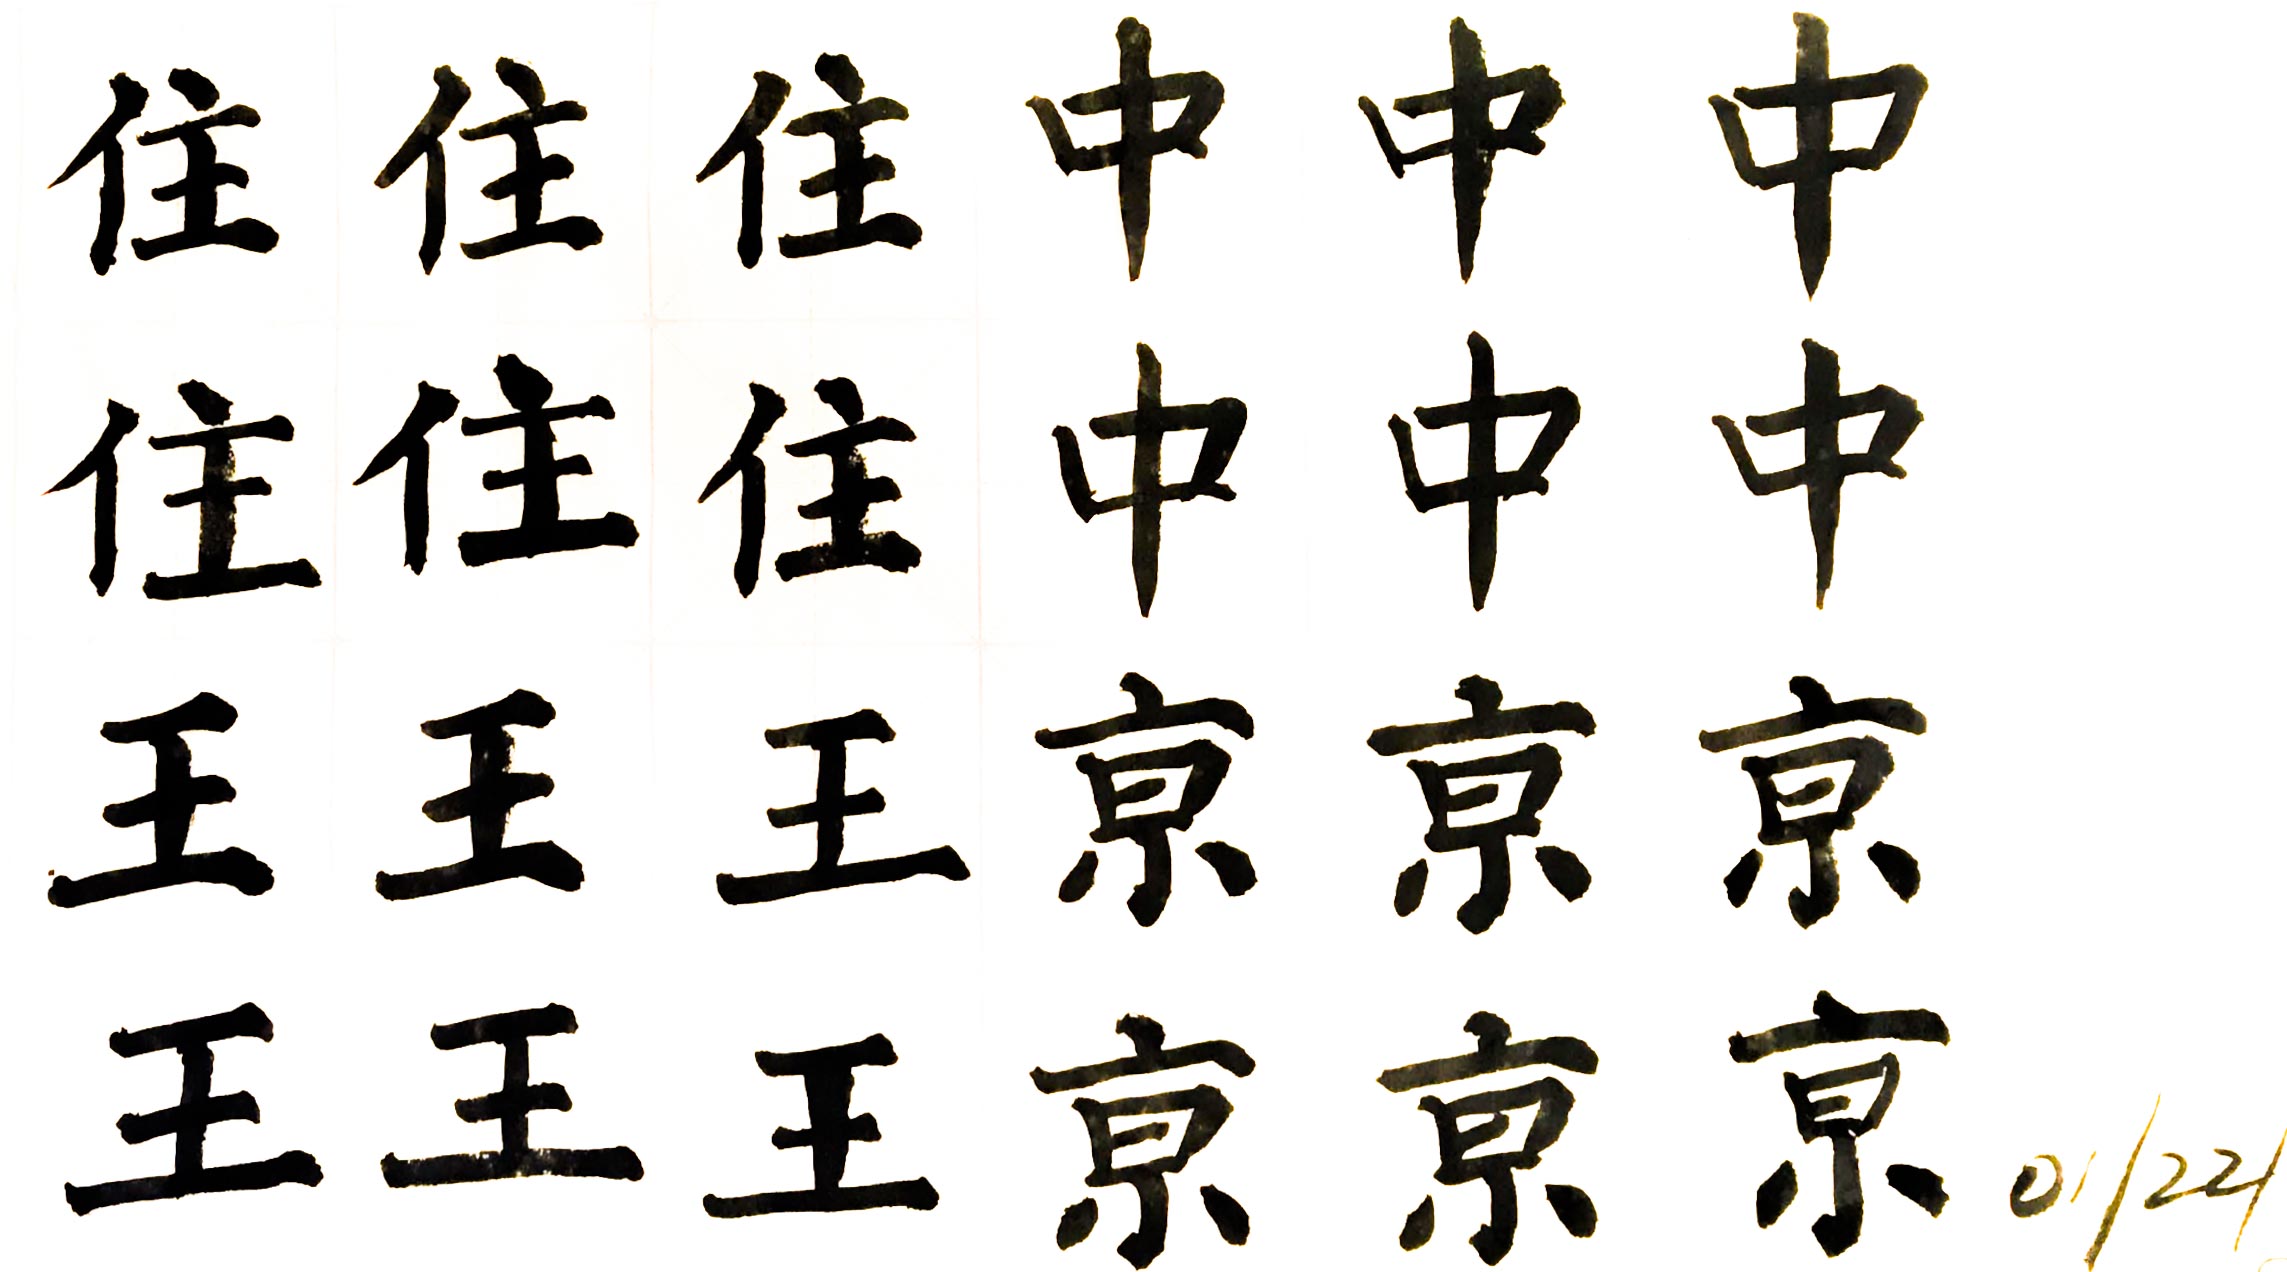 住住住中中中
住住住中中中
王王王京京京
王王王京京京 01/22/